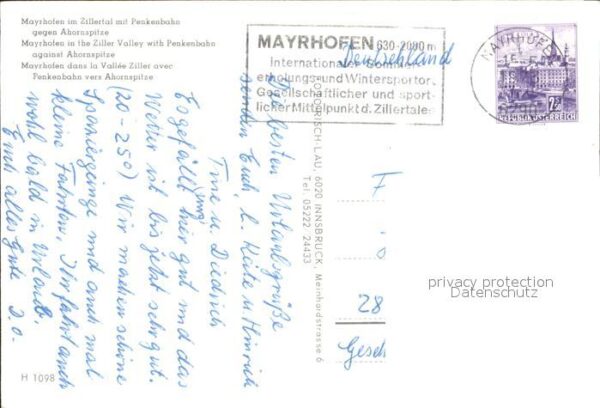 Mayrhofen im Zillertal mit Penkenbahn
gegen Ahornspitze
Mayrhofen in the Ziller Valley with Penkenbahn
against Ahornspitze
Mayrhofen dans la Vallée Ziller avec
Penkenbahn vers Ahornspitze
MAYRHOFEN 630-2000 m
Internationaler Sommer-
erholungs-und Wintersportort
Gesellschaftlicher und sport-
licher Mittelpunkt d. Zillertales
Deutschland
MAYRHOFEN
REPUBLIK ÖSTERREICH
Die besten Urlaubsgrüße
senden Euch, l. Käte u. Hinrich
Tine u. Diedrich
Es gefällt hier gut und das
Wetter ist bis jetzt sehr gut.
(20-25°) Wir machen schöne
Spaziergänge und auch mal
kleine Fahrten, Ihr fahrt auch
wohl bald in Urlaub.
Euch alles Gute D.O.
RISCH-LAU, 6020 INNSBRUCK, Meinhardstrasse 6
Tel. 05222 24433
F
28
Gesch
H 1098
privacy protection
Datenschutz